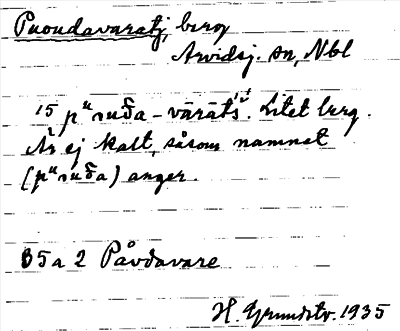 Puoudavaratj, berg
Arvidsj. sn, Nbl
15 pᵘouδa-vārātś. Litet berg.
Är ej kalt, såsom namnet
(pᵘouδa) anger.
B5a 2 Påvdavare
H. Grundstr. 1935